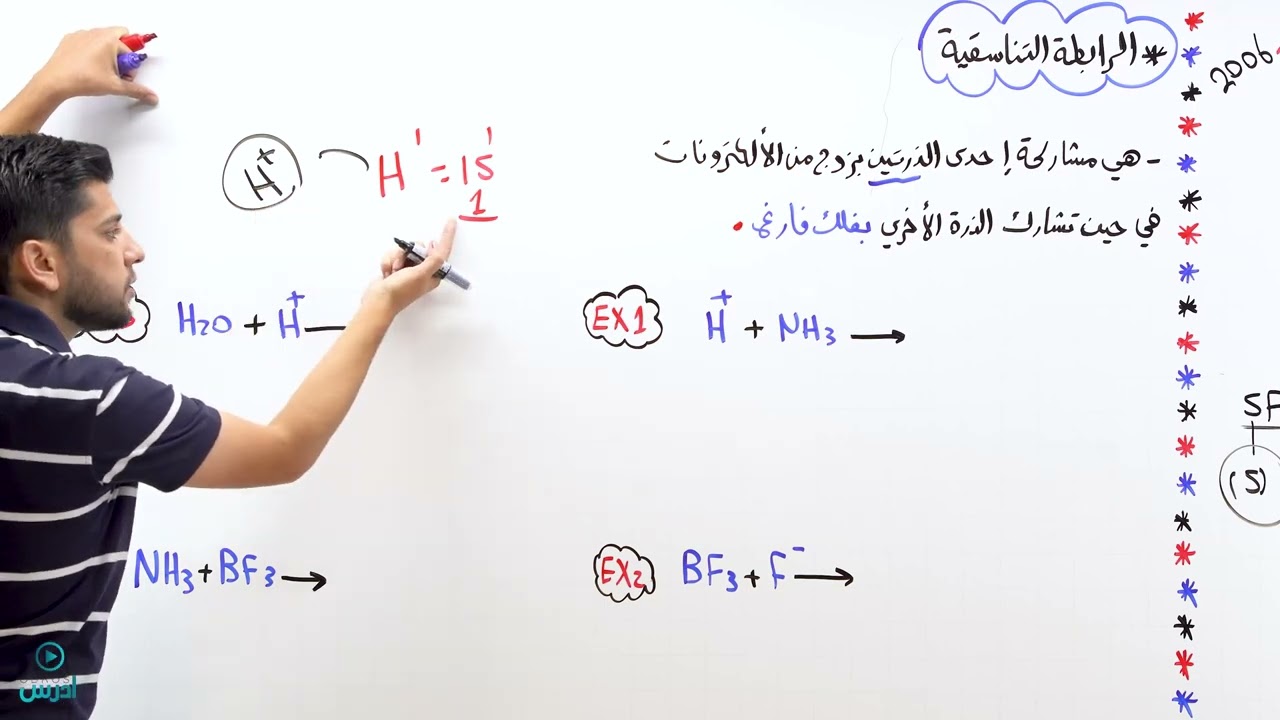 * الرابطة التناسقية
2006
- هي مشاركة إحدى الذرتين بزوج من الألكترونات
في حين تشارك الذرة الأخرى بفلك فارغ .
H⁺
H¹ = 1S¹
1
EX1 H⁺ + NH3 →
H2O + H⁺ —
SF
(S)
EX2 BF3 + F⁻ →
NH3 + BF3 →
ادرس